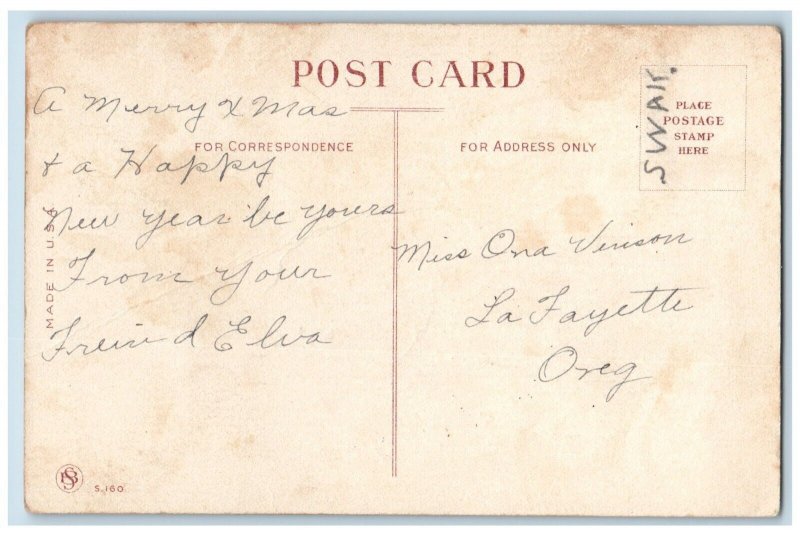 POST CARD
A Merry X Mas
FOR CORRESPONDENCE
& a Happy
New Year be yours
From Your
Freind Elva
MADE IN U.S.A.
FOR ADDRESS ONLY
PLACE
POSTAGE
STAMP
HERE
SWAK.
Miss Ona Vinson
La Fayette
Oreg
S.160